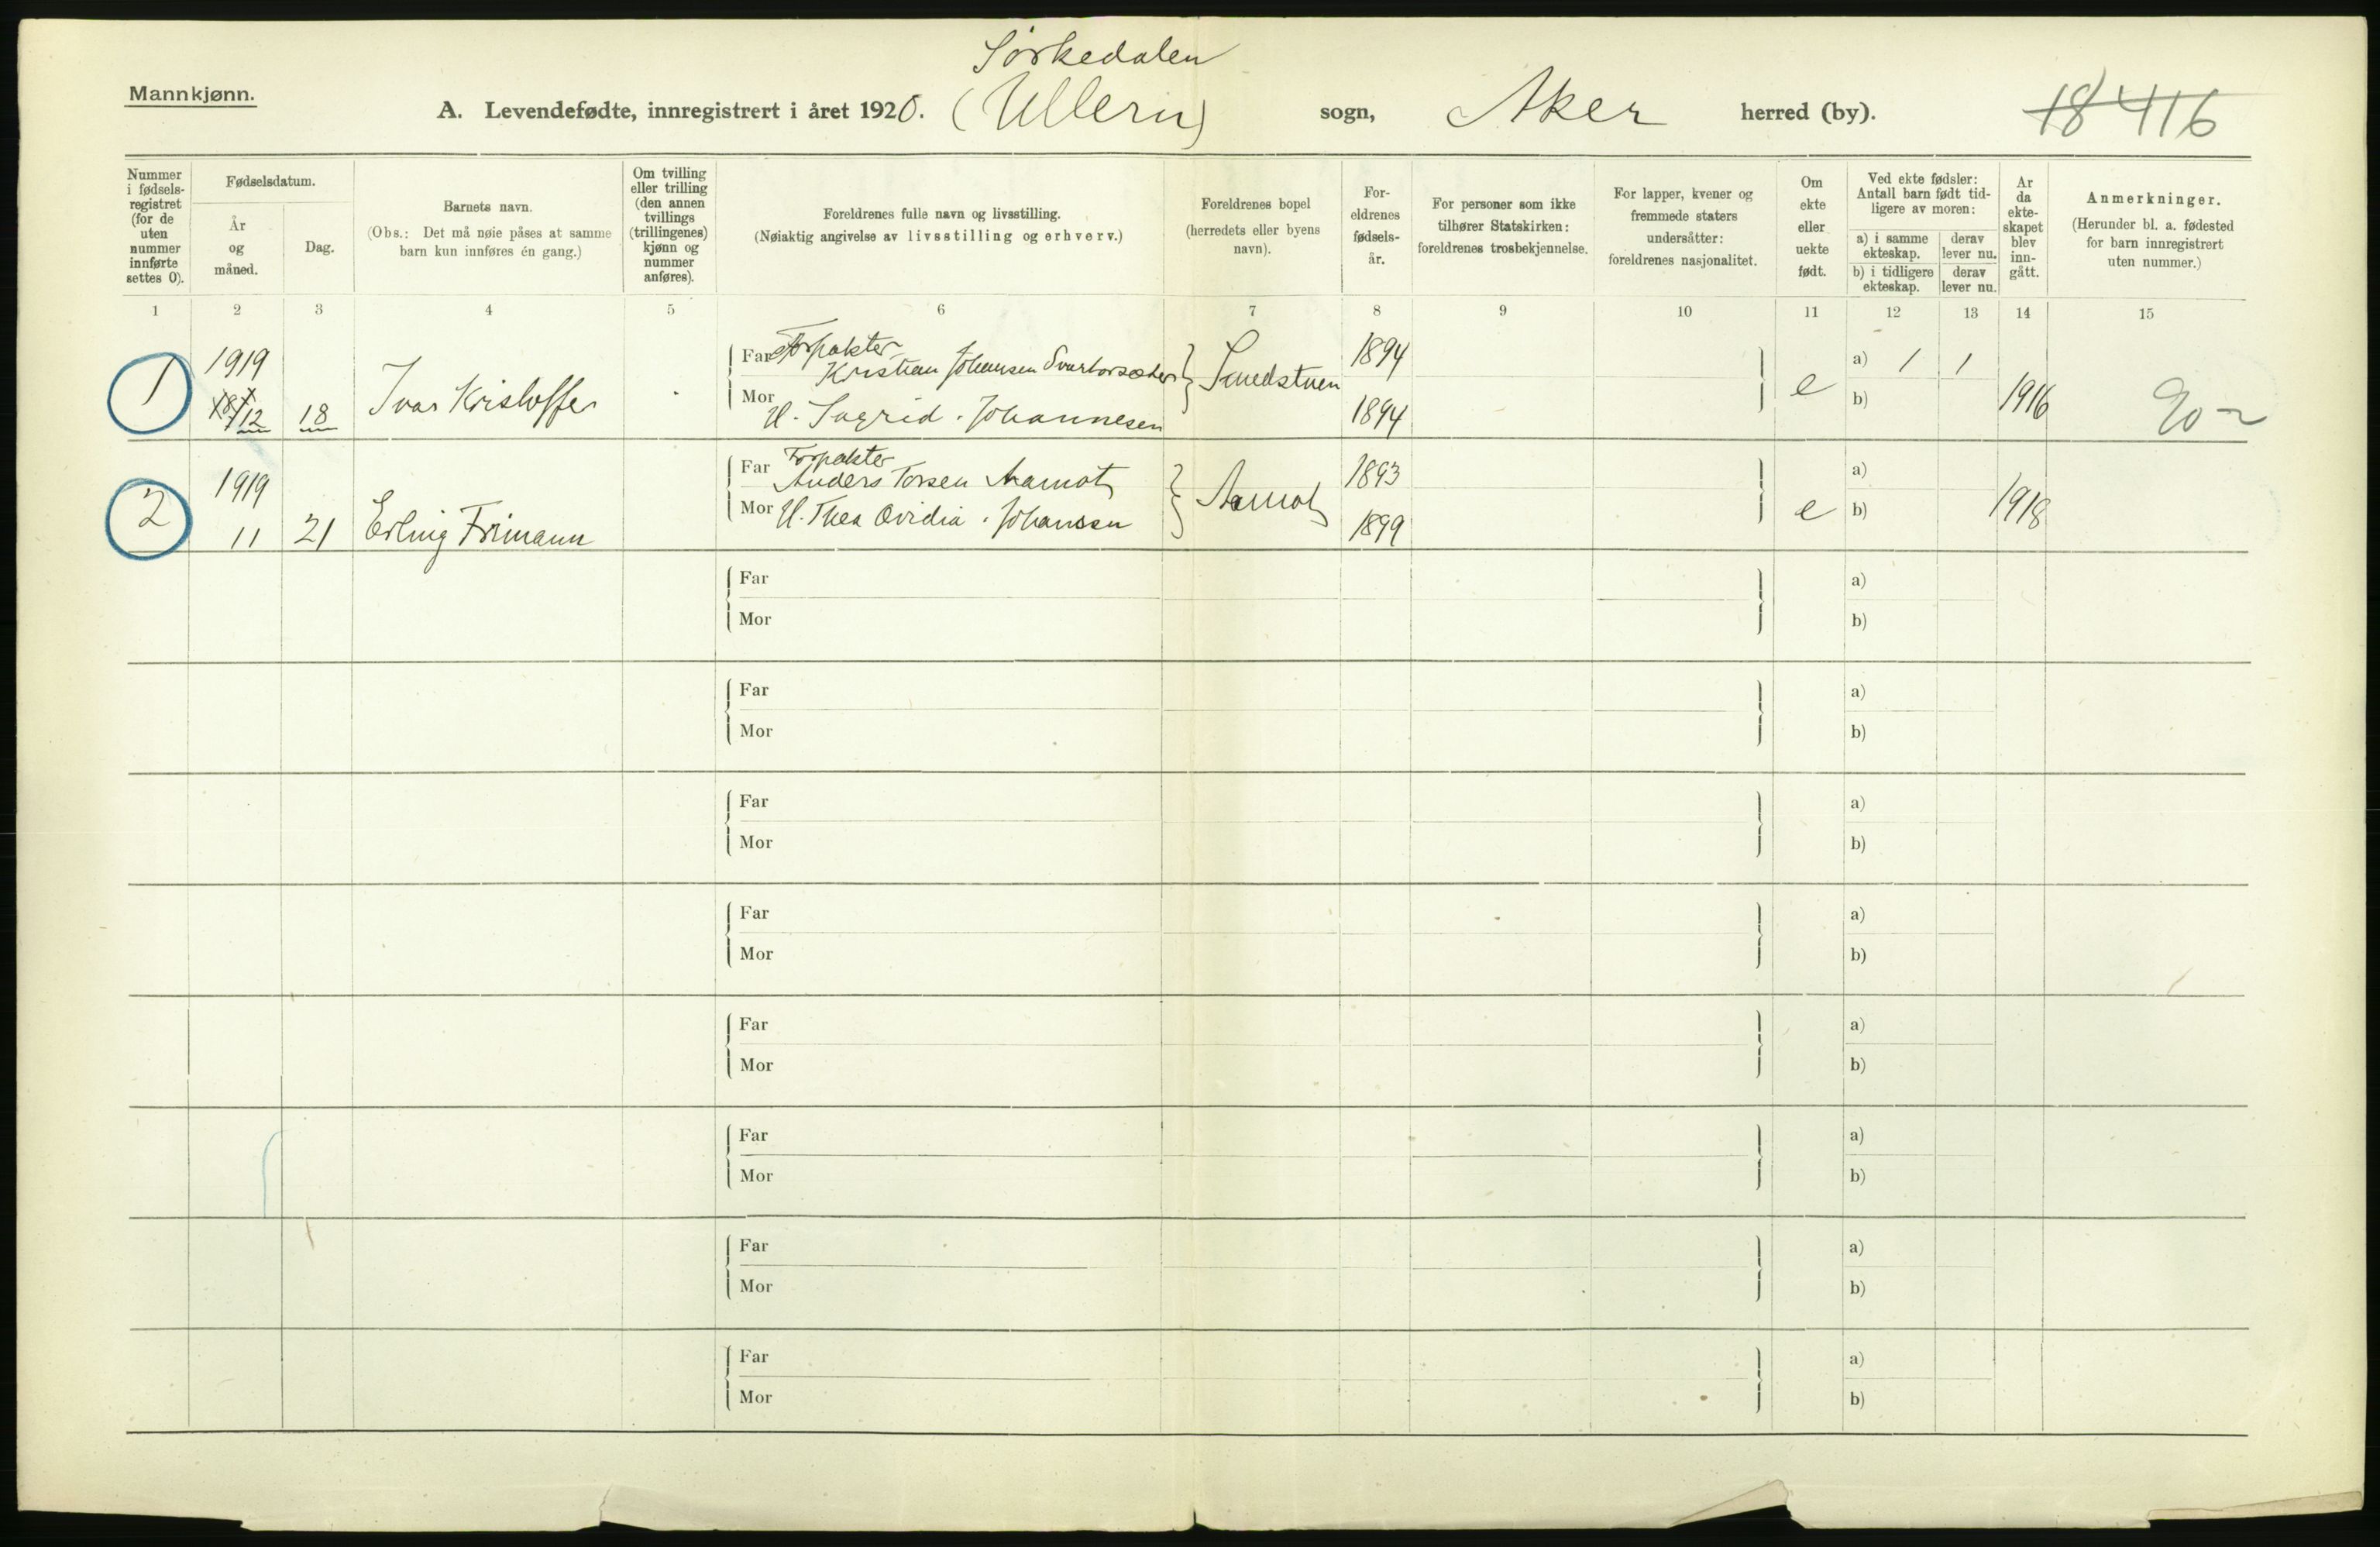 Sørkedalen
Mannkjønn.
A. Levendefødte, innregistrert i året 1920. (Ullern) sogn, Aker herred (by).
18 416
Nummer i fødsels-registret (for de uten nummer innførte settes 0).
Fødselsdatum.
År og måned.
Dag.
Barnets navn.
(Obs.: Det må nøie påses at samme barn kun innføres én gang.)
Om tvilling eller trilling (den annen tvillings (trillingenes) kjønn og nummer anføres).
Foreldrenes fulle navn og livsstilling.
(Nøiaktig angivelse av livsstilling og erhverv.)
Foreldrenes bopel (herredets eller byens navn).
For-eldrenes fødsels-år.
For personer som ikke tilhører Statskirken: foreldrenes trosbekjennelse.
For lapper, kvener og fremmede staters undersåtter: foreldrenes nasjonalitet.
Om ekte eller uekte født.
Ved ekte fødsler: Antall barn født tid-ligere av moren:
a) i samme ekteskap.
derav lever nu.
b) i tidligere ekteskap.
derav lever nu.
Ar da ekte-skapet blev inn-gått.
Anmerkninger.
(Herunder bl. a. fødested for barn innregistrert uten nummer.)
1 2 3 4 5 6 7 8 9 10 11 12 13 14 15
1 1919 12 18 Ivar Kristoffer
Far Forpakter Kristian Johansen Svartorsæter
Mor H. Ingrid Johannesen
Smedstuen 1894 1894 e a) 1 1 b) 1916
2 1919 11 21 Erling Frimann
Far Forpakter Anders Torsen Aamot
Mor H. Thea Ovidia Johansen
Aamot 1893 1899 e a) b) 1918
Far a)
Mor b)
Far a)
Mor b)
Far a)
Mor b)
Far a)
Mor b)
Far a)
Mor b)
Far a)
Mor b)
Far a)
Mor b)
Far a)
Mor b)